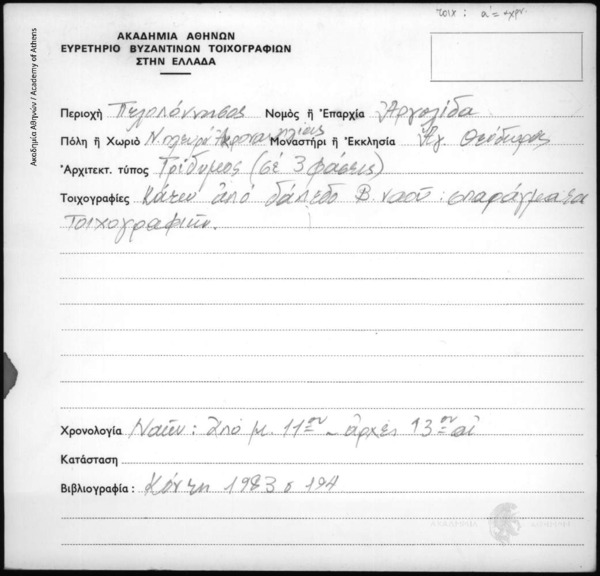 τοιχ: α' = χρ.
ΑΚΑΔΗΜΙΑ ΑΘΗΝΩΝ
ΕΥΡΕΤΗΡΙΟ ΒΥΖΑΝΤΙΝΩΝ ΤΟΙΧΟΓΡΑΦΙΩΝ
ΣΤΗΝ ΕΛΛΑΔΑ
Ακαδημία Αθηνών / Academy of Athens
Περιοχή Πελοπόννησος Νομός ἤ Ἐπαρχία Ἀργολίδα
Πόλη ἤ Χωριό Ν πλευρό Ἀκροναυπλίας Μοναστήρι ἤ Ἐκκλησία Ἁγ. Θεόδωρος
Ἀρχιτεκτ. τύπος Τρίδυμος (σέ 3 φάσεις)
Τοιχογραφίες Κάτω ἀπό δάπεδο Β. ναοῦ: σπαράγματα
τοιχογραφιῶν.
Χρονολογία Ναῶν: ἀπό μ. 11ου - ἀρχές 13ου αἰ
Κατάσταση
Βιβλιογραφία: Κόντη 1983 σ 194
ΑΚΑΔΗΜΙΑ ΑΘΗΝΩΝ